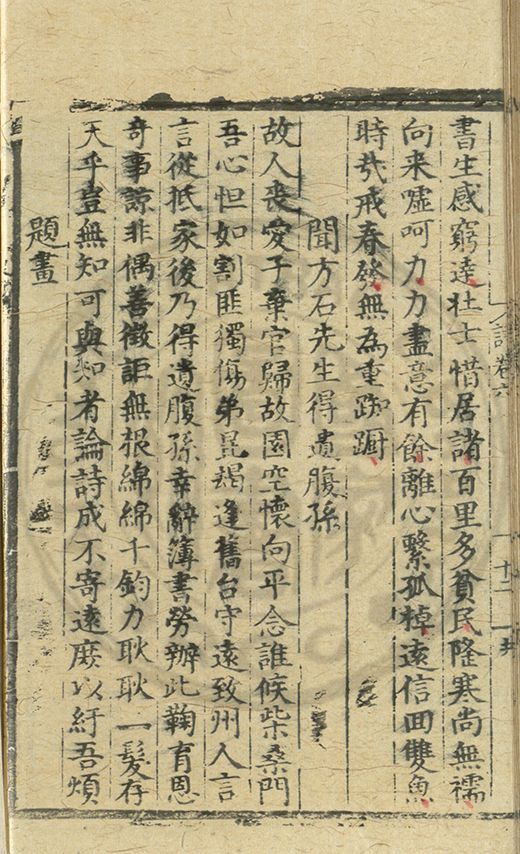 書生感窮達壯士惜居諸百里多貧民隆寒尚無襦
向来噓呵力力盡意有餘離心繫孤棹遠信囬雙魚
時㢤戒春發無為重踟蹰
聞方石先生得遺腹孫
故人喪愛子棄官歸故園空懷向平念誰候柴桑門
吾心怛如割匪獨傷弟昆朅逢舊台守遠致州人言
言從抵家後乃得遺腹孫幸辭簿書勞辦此鞠育恩
奇事諒非偶善徵詎無根綿綿千鈞力耿耿一髮存
天乎豈無知可與知者論詩成不寄遠庶以紓吾煩
題畫